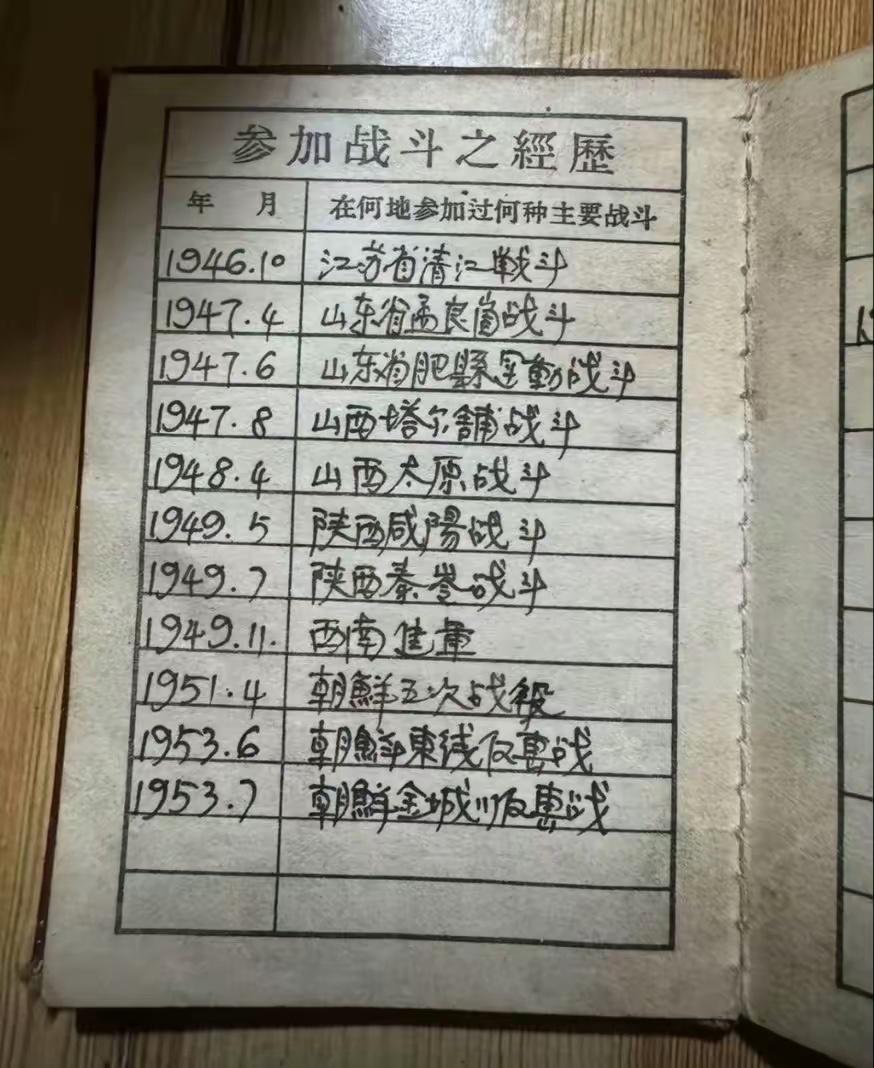 参加战斗之經歷
年 月 在何地参加过何种主要战斗
1946.10 江苏省清江戦斗
1947.4 山东省孟良崮战斗
1947.6 山东省肥縣 動战斗
1947.8 山西塔尔舖战斗
1948.4 山西太原战斗
1949.5 陕西咸陽战斗
1949.7 陕西秦岺战斗
1949.11. 西南進軍
1951.4 朝鮮五次战役
1953.6 朝鮮東线反 战
1953.7 朝鮮金城川反 战